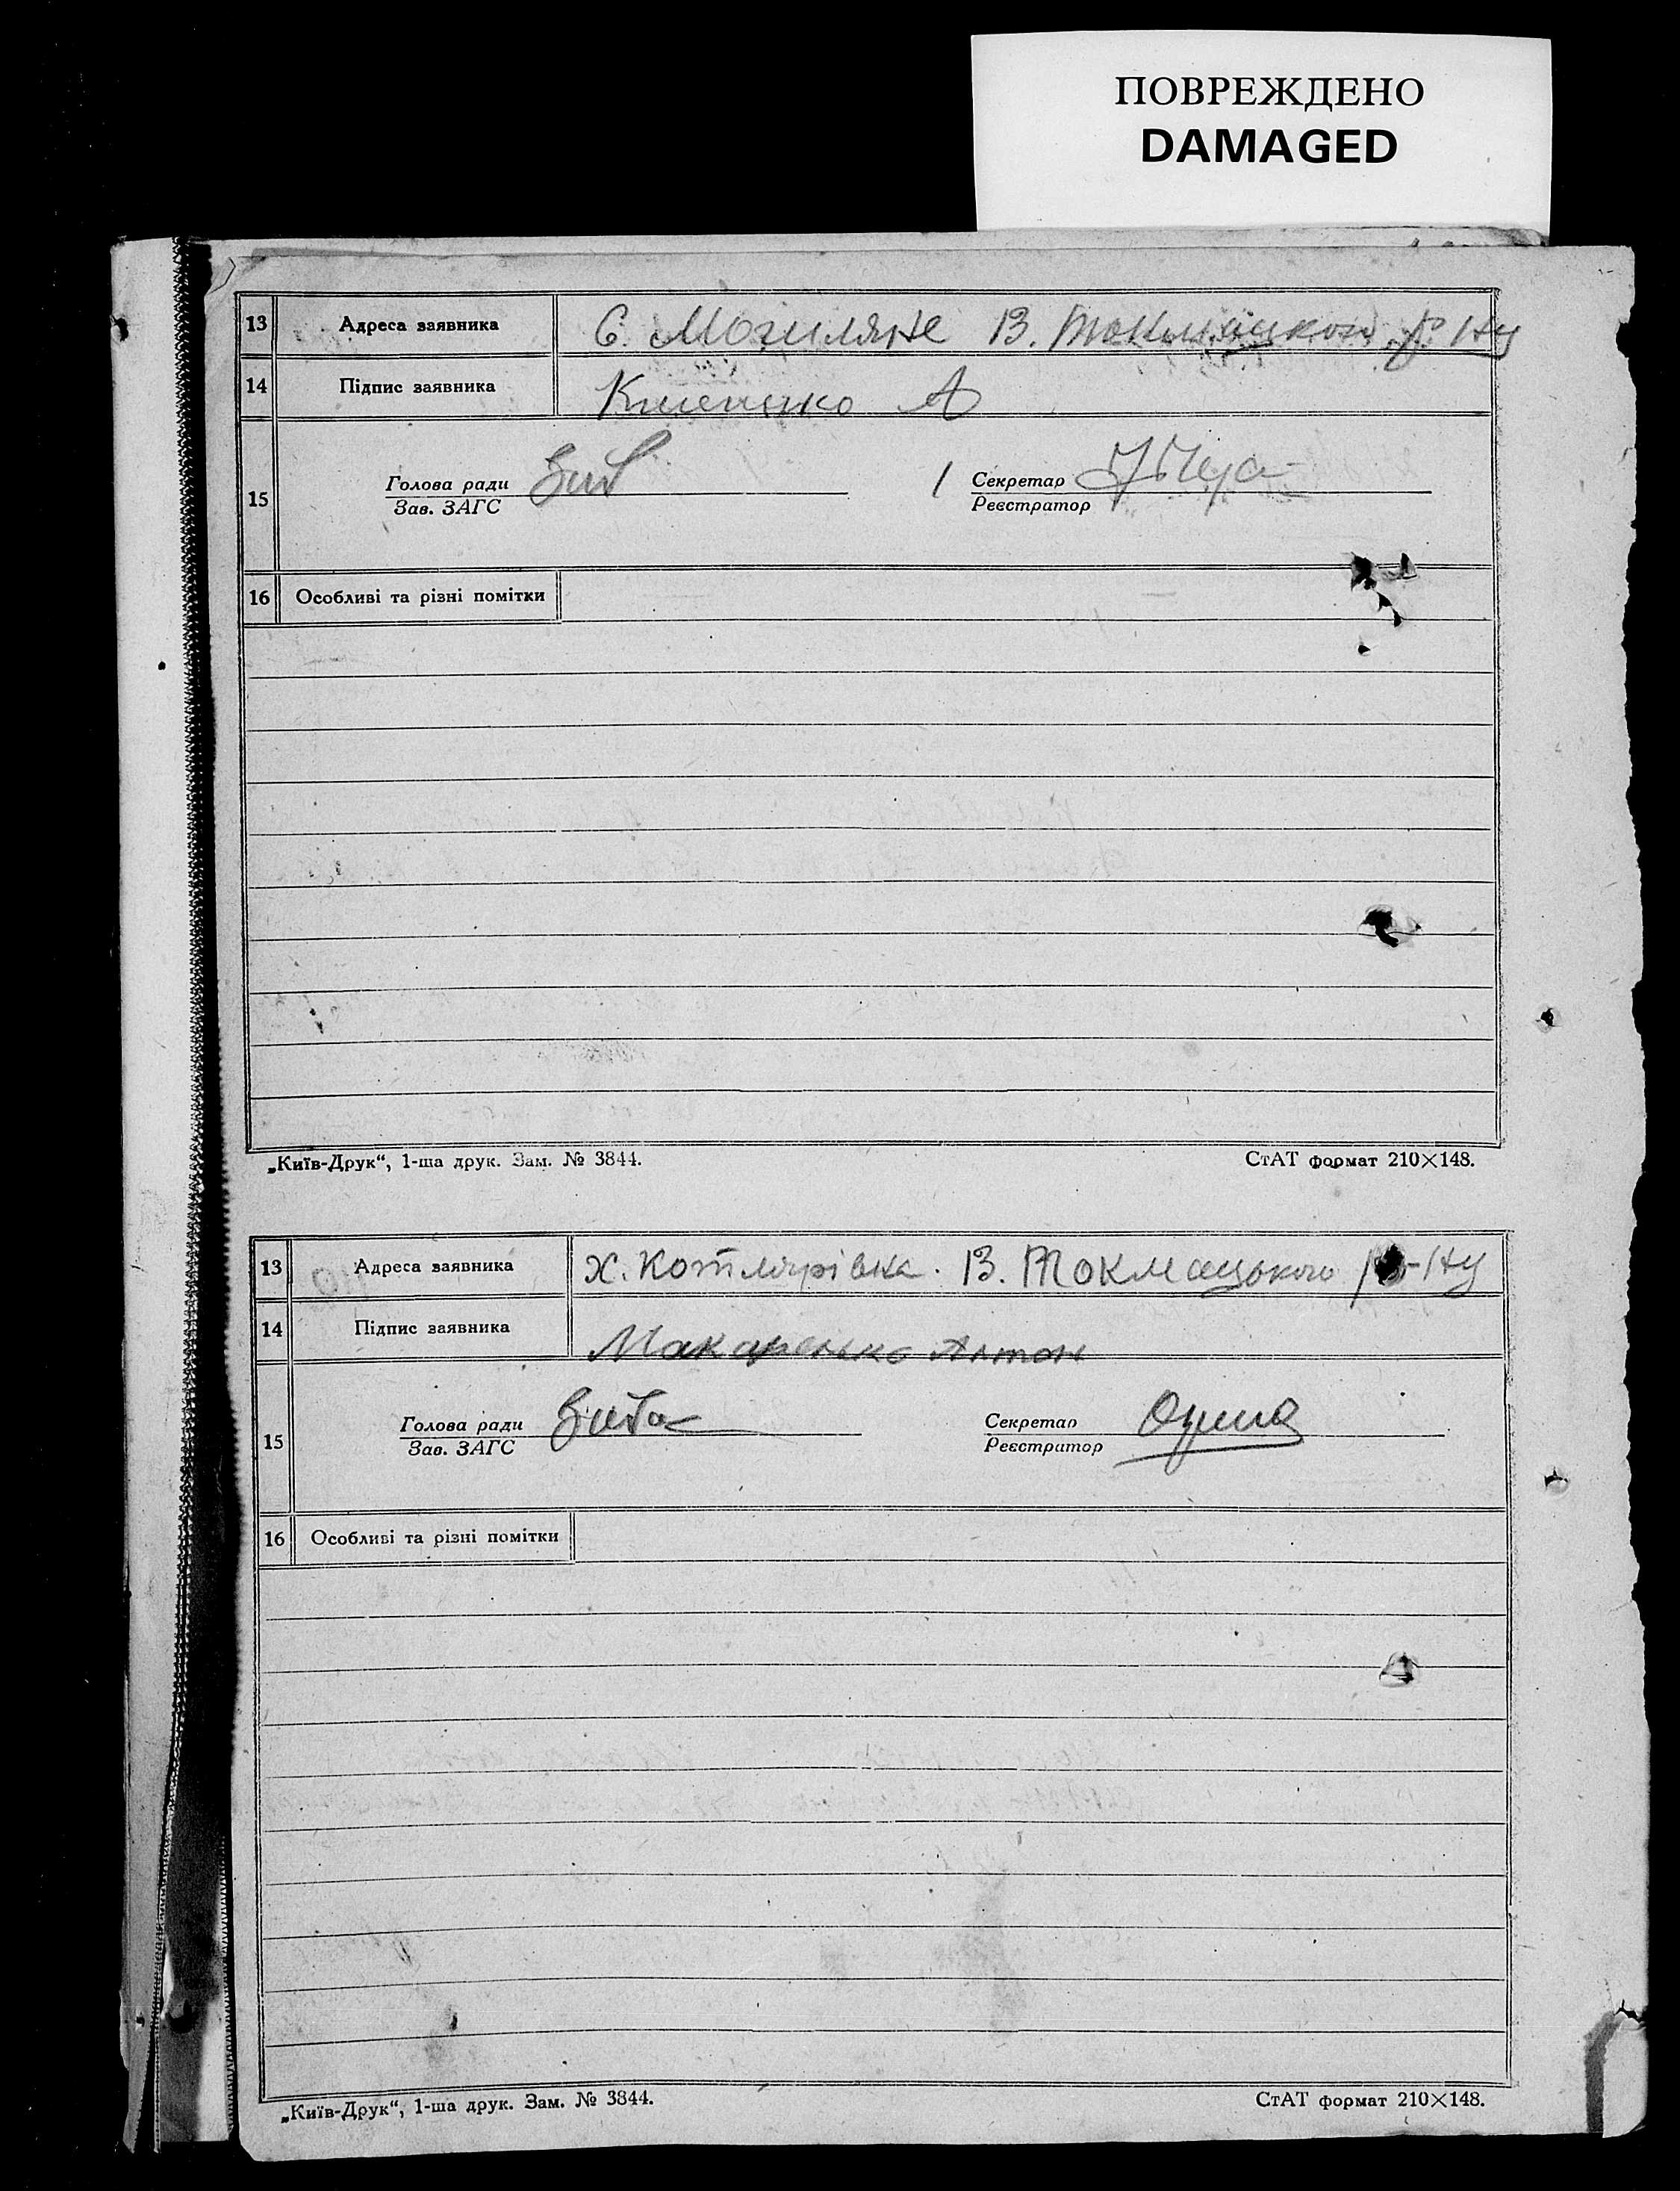 ПОВРЕЖДЕНО
DAMAGED
13 Адреса заявника С. Могиляне В. Токмацкого р-ну
14 Підпис заявника А
15 Голова ради Секретар
Зав. ЗАГС Реєстратор
16 Особливі та різні помітки
„Київ-Друк“, 1-ша друк. Зам. № 3844. СтАТ формат 210×148.
13 Адреса заявника х. Котлярівка. В. Токмацького р-ну
14 Підпис заявника Макаренко Антон
15 Голова ради Секретар
Зав. ЗАГС Реєстратор
16 Особливі та різні помітки
„Київ-Друк“, 1-ша друк. Зам. № 3844. СтАТ формат 210×148.